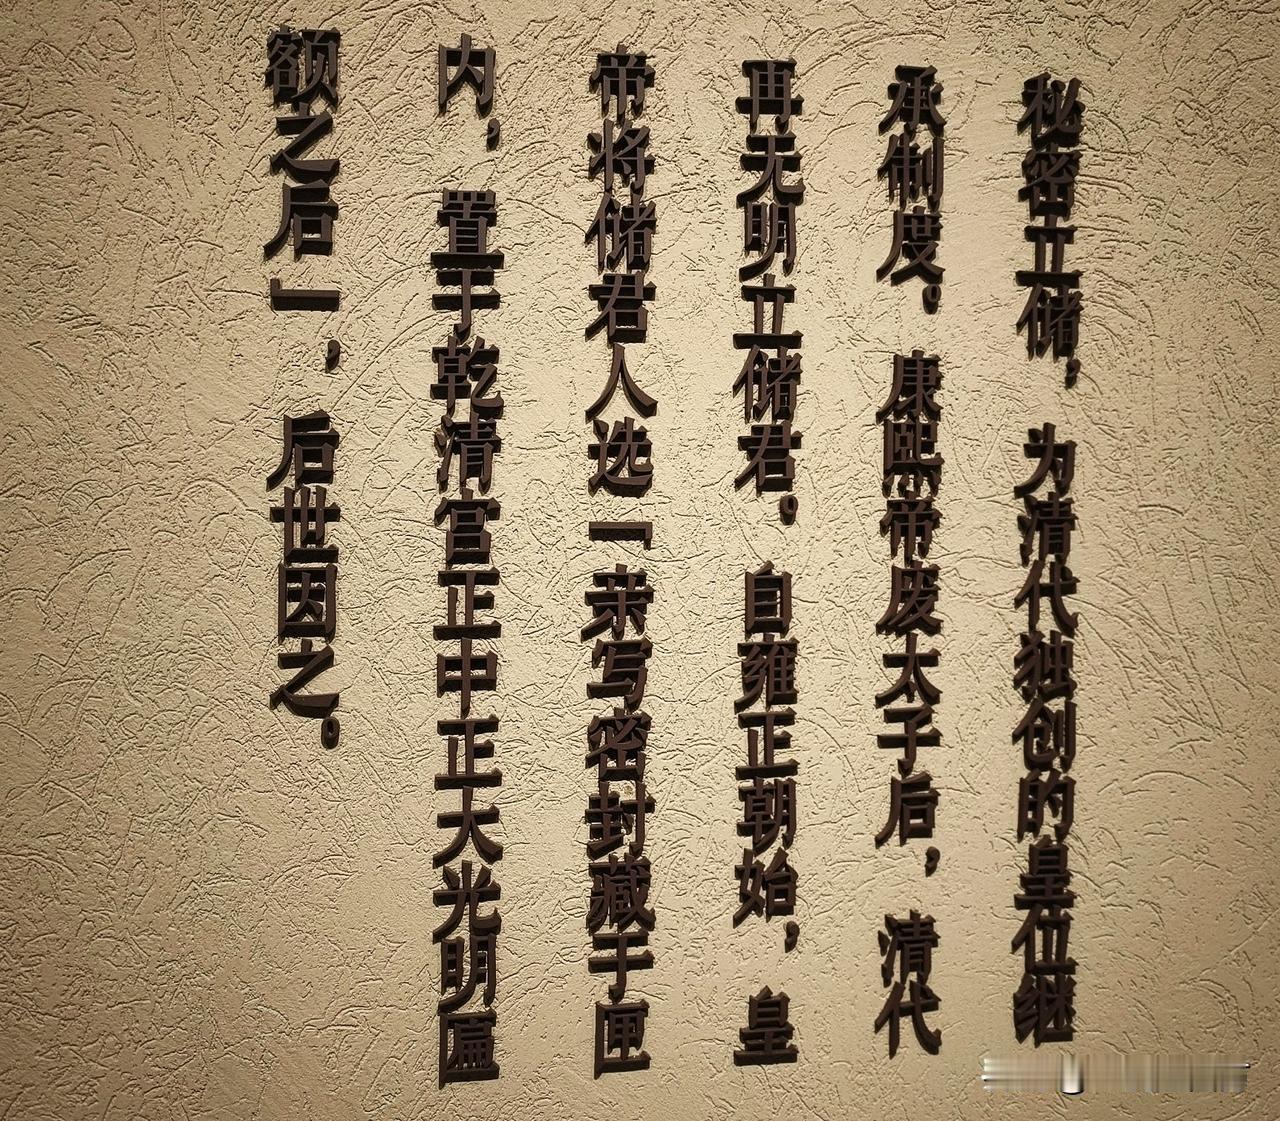 秘密立储，为清代独创的皇位继
承制度。康熙帝废太子后，清代
再无明立储君。自雍正朝始，皇
帝将储君人选「亲写密封藏于匣
内，置于乾清宫正中正大光明匾
额之后」，后世因之。